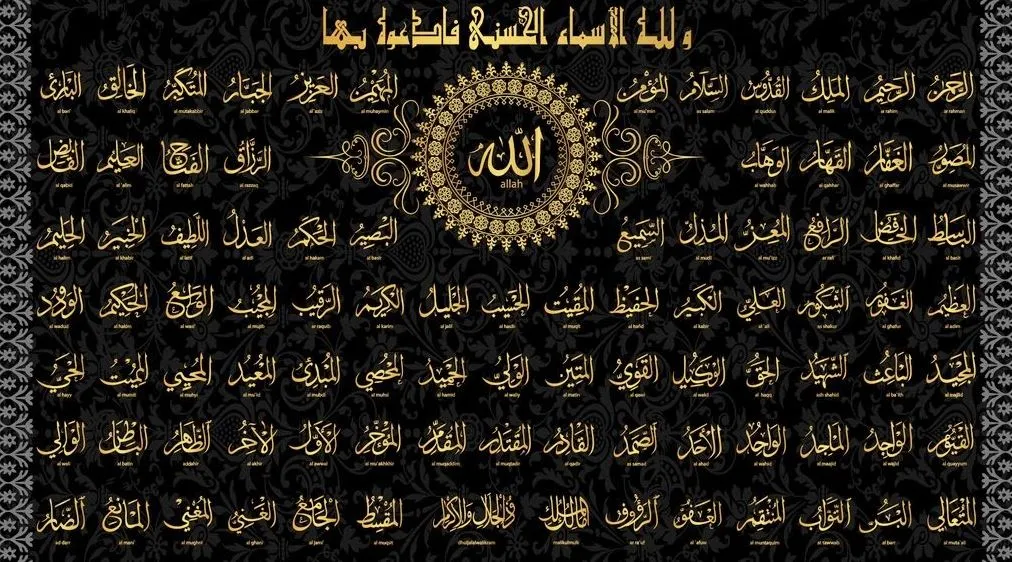 ولله الأسماء الحسنى فادعوه بها
الرحمن الرحيم الملك القدوس السلام المؤمن المهيمن العزيز الجبار المتكبر الخالق البارئ
ar rahim al malik al quddus as salam mu'min al muhaymin al 'aziz al jabbar al mutakabbir al khaliq al bari
الله
allah
المصور الغفار القهار الوهاب الرزاق الفتاح العليم القابض
al musawwir al ghaffar al qahhar al wahhab ar razzaq al fattah al 'alim al qabid
الباسط الخافض الرافع المعز المذل السميع البصير الحكم العدل اللطيف الخبير الحليم
al basit al khafid ar rafi al mu'izz al mudil as sami al basir al hakam al adl al latif al khabir al halim
العظيم الغفور الشكور العلي الكبير الحفيظ المقيت الحسيب الجليل الكريم الرقيب المجيب الواسع الحكيم الودود
al adim al ghafur as shakur al 'ali al kabir al hafid al muqit al hasib al jalil al karim ar raqib al mujib al wasi' al hakim al wadud
المجيد الباعث الشهيد الحق الوكيل القوي المتين الولي الحميد المحصي المبدئ المعيد المحيي المميت الحي
al majid al ba'ith ash shahid al haqq al wakil al qawi al matin al waliy al hamid al muhsi al mubdi al mu'id al muhyi al mumit al hayy
القيوم الواجد الماجد الواحد الأحد الصمد القادر المقتدر المقدم المؤخر الأول الآخر الظاهر الباطن الوالي
al quayyum al wajid al maajid al wahid al ahad as samad al qadir al muqtadir al muqaddim al mu'akhkhir al awwal al akhir addahir al batin al wali
المتعالي البر التواب المنتقم العفو الرؤوف مالك الملك ذو الجلال والإكرام المقسط الجامع الغني المغني المانع الضار
al muta'ali al barr at tawwab al muntaquim al 'afuw ar ra'uf malikulmulk dhuljalalwalikram al muqsit al jami' al ghani al mughni al mani' ad darr